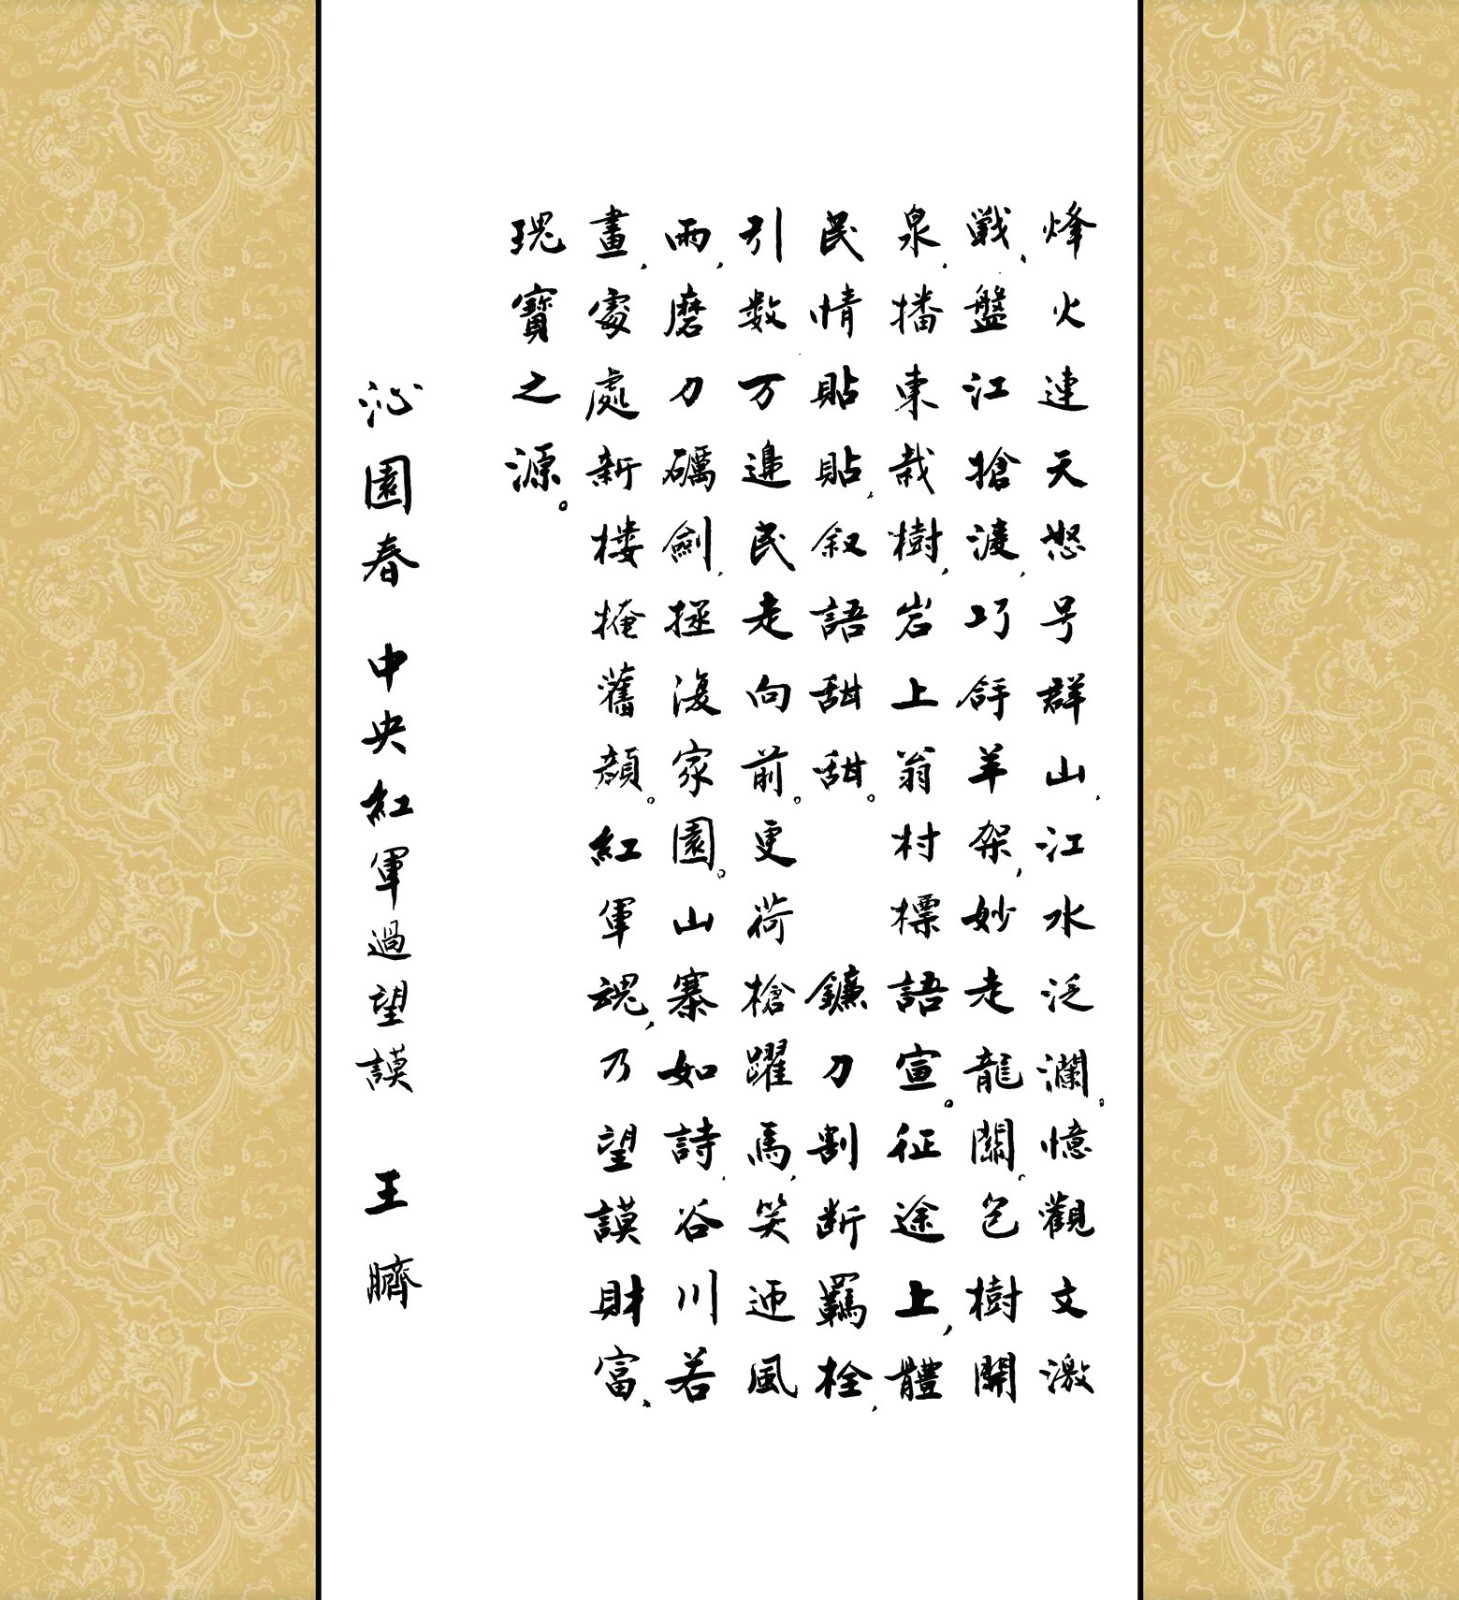 烽火連天怒号群山，江水泛瀾。憶觀文激
戰、盤江搶渡，巧仔羊架，妙走龍關。包樹開
泉，播東栽樹，岩上翁村標語宣。征途上，體
民情貼貼，叙語甜甜。　鐮刀割断羈栓，
引数万邊民走向前。更荷槍躍馬，笑迎風
雨，磨刀礪劍，拯復家園。山寨如詩，谷川若
畫，處處新樓掩舊顔。紅軍魂，乃望謨財富、
瑰寶之源。
沁園春 中央紅軍過望謨 王臍